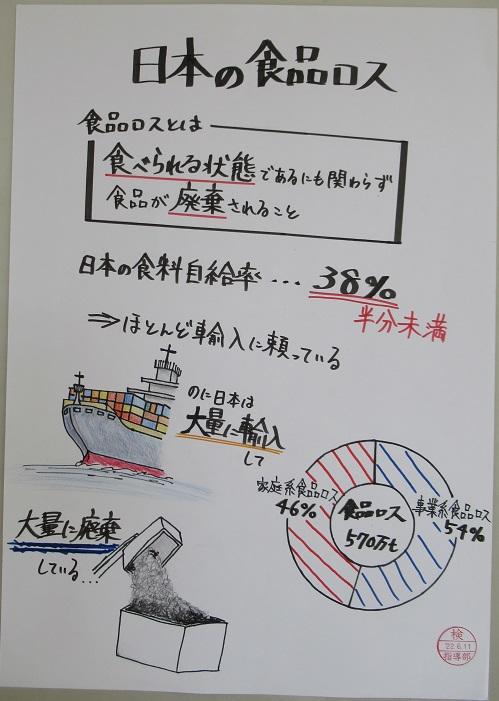 日本の食品ロス
食品ロスとは
食べられる状態であるにも関わらず
食品が廃棄されること
日本の食料自給率…38%
半分未満
⇒ほとんど輸入に頼っている
のに日本は
大量に輸入
して
家庭系食品ロス
46%
食品ロス
570万t
事業系食品ロス
54%
大量に廃棄
している…
検
'22.6.11
指導部